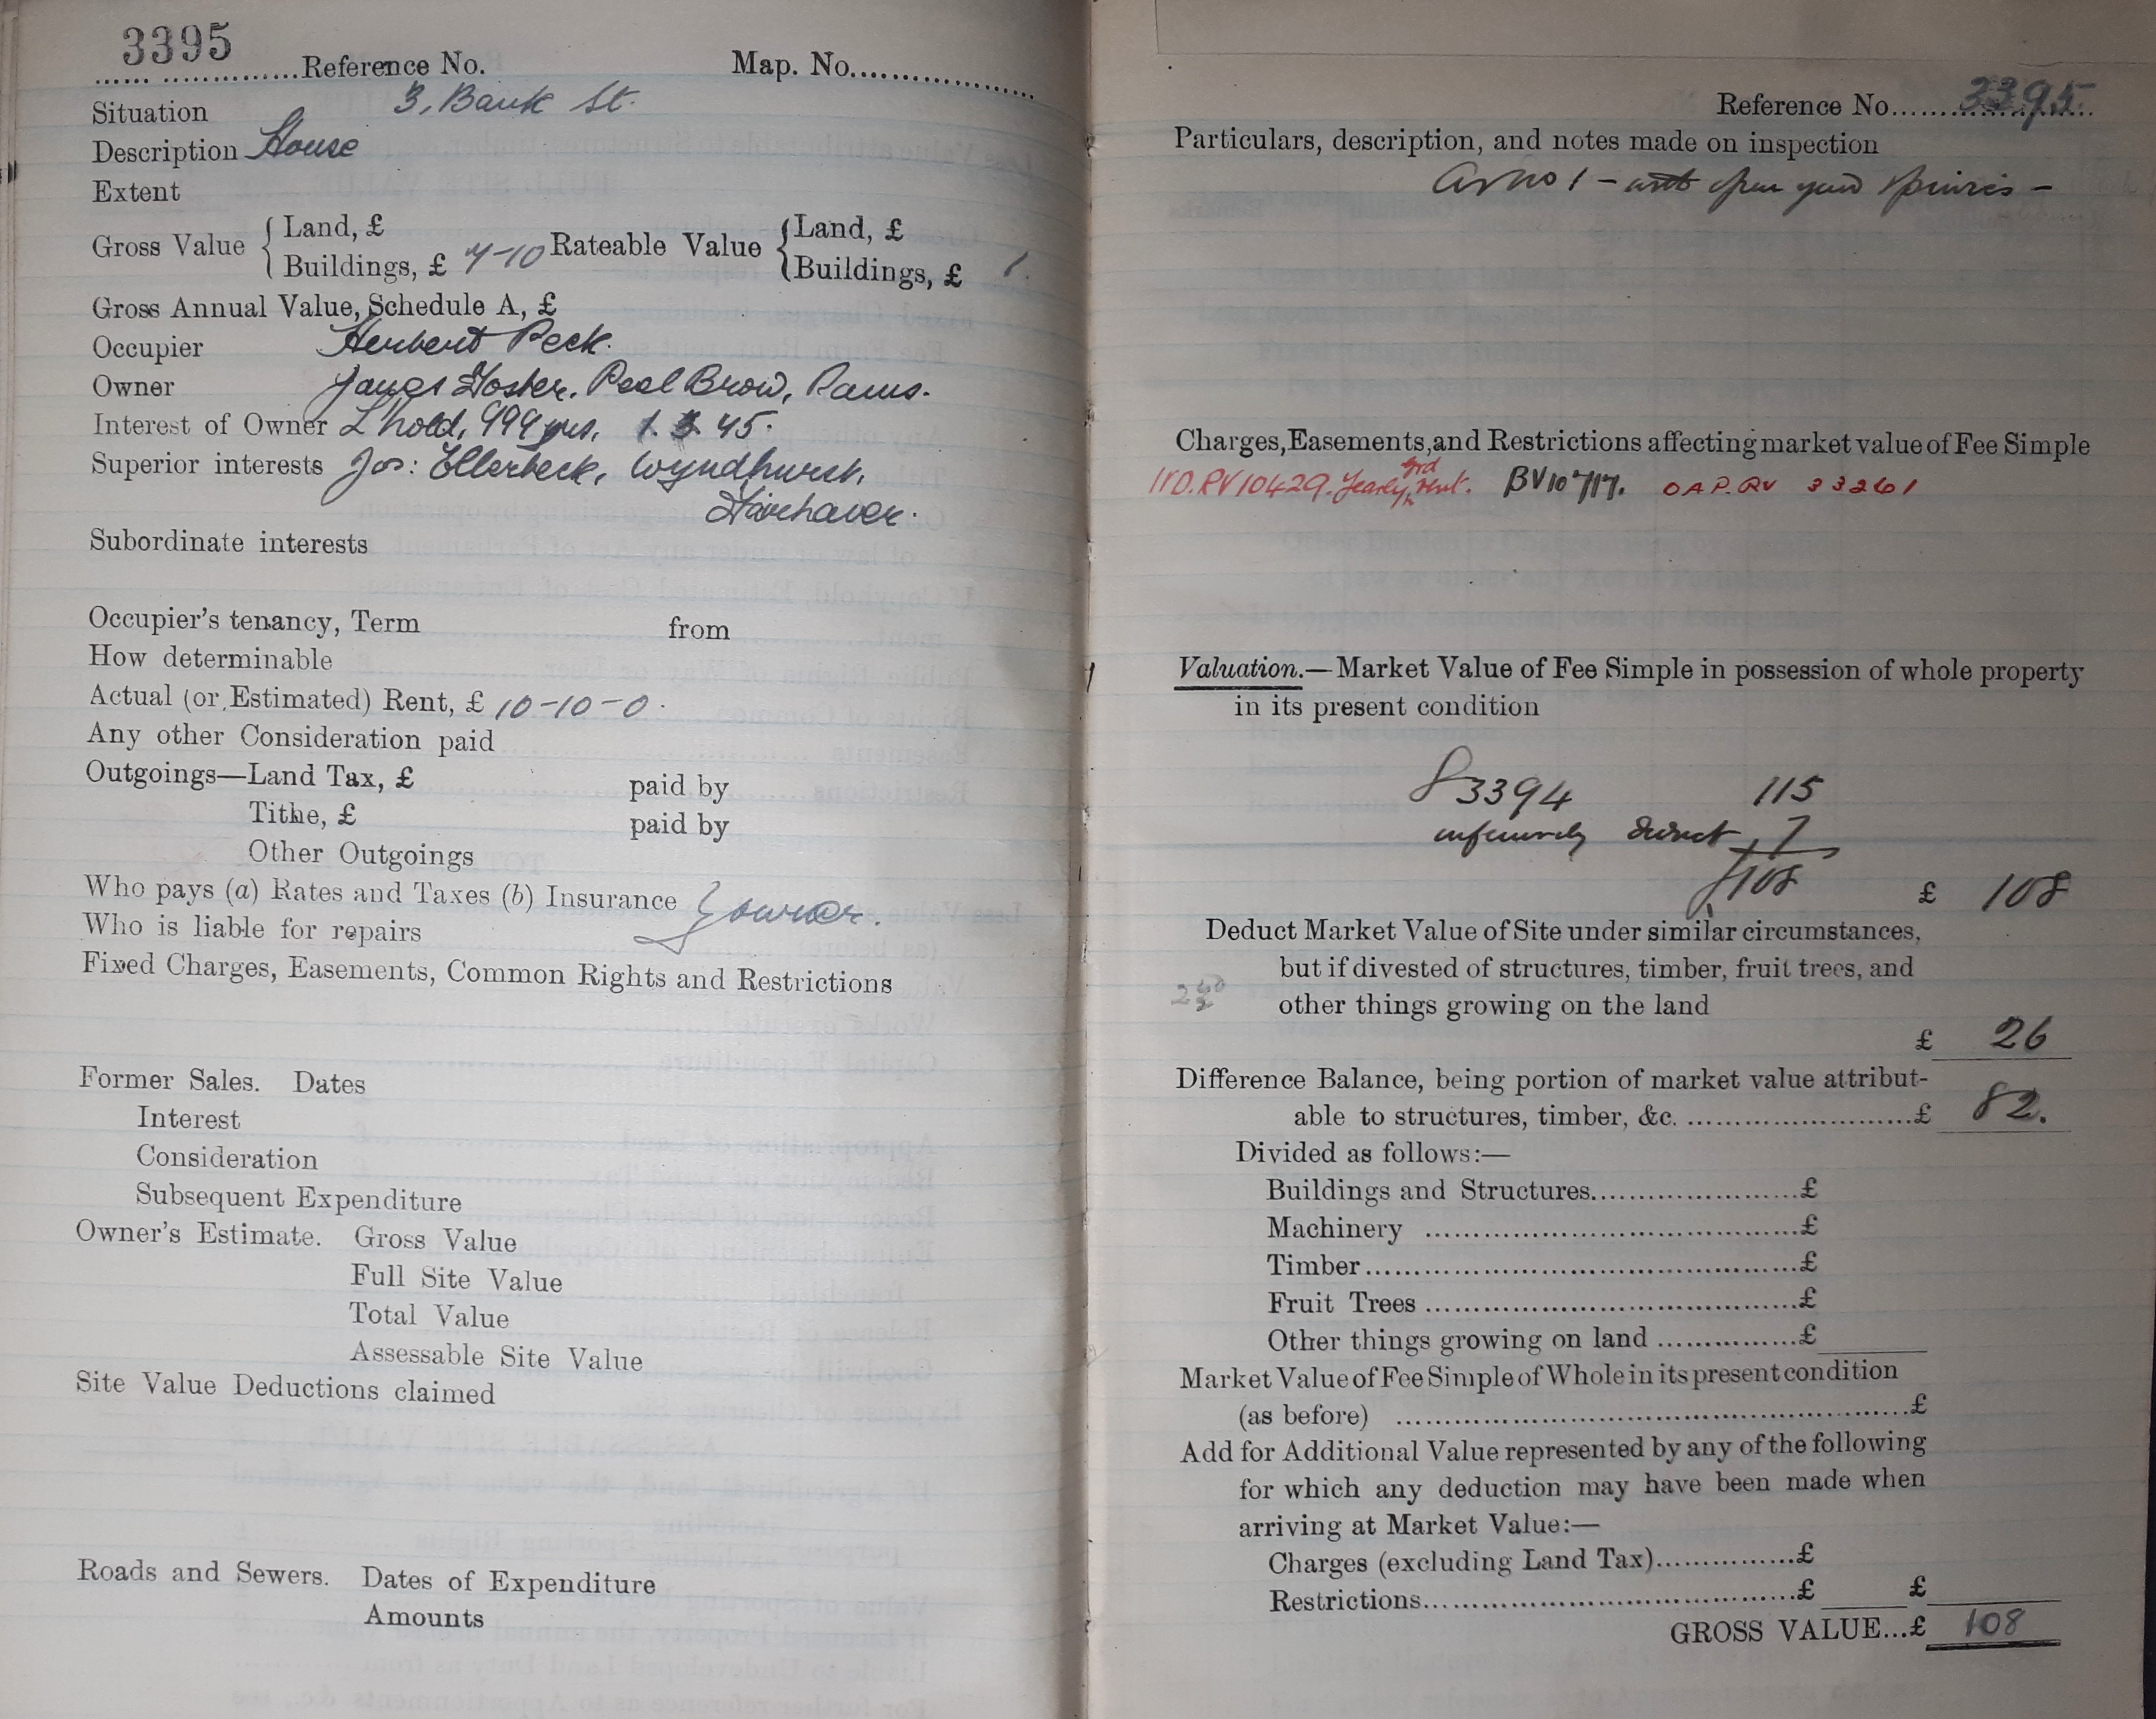 3395
Reference No. Map. No.
Situation 3, Bank St.
Description House
Extent
Gross Value { Land, £ Rateable Value { Land, £
Buildings, £ 7-10 Buildings, £ 1
Gross Annual Value, Schedule A, £
Occupier Herbert Peck.
Owner James Foster. Peel Brow, Rams.
Interest of Owner L'hold, 999 yrs. 1. 3 45.
Superior interests Jos: Ellerbeck, Wyndhurst,
Fairhaven.
Subordinate interests
Occupier's tenancy, Term from
How determinable
Actual (or Estimated) Rent, £ 10-10-0.
Any other Consideration paid
Outgoings—Land Tax, £ paid by
Tithe, £ paid by
Other Outgoings
Who pays (a) Rates and Taxes (b) Insurance } owner.
Who is liable for repairs
Fixed Charges, Easements, Common Rights and Restrictions
Former Sales. Dates
Interest
Consideration
Subsequent Expenditure
Owner's Estimate. Gross Value
Full Site Value
Total Value
Assessable Site Value
Site Value Deductions claimed
Roads and Sewers. Dates of Expenditure
Amounts
Reference No. 3395
Particulars, description, and notes made on inspection
As No 1 - with open yard
Charges, Easements, and Restrictions affecting market value of Fee Simple
RV 10429. Yearly grd rent. RV 33261
Valuation.—Market Value of Fee Simple in possession of whole property
in its present condition
3394 115
deduct 7
108 £ 108
Deduct Market Value of Site under similar circumstances,
but if divested of structures, timber, fruit trees, and
other things growing on the land
£ 26
Difference Balance, being portion of market value attribut-
able to structures, timber, &c. £ 82.
Divided as follows:—
Buildings and Structures £
Machinery £
Timber £
Fruit Trees £
Other things growing on land £
Market Value of Fee Simple of Whole in its present condition
(as before) £
Add for Additional Value represented by any of the following
for which any deduction may have been made when
arriving at Market Value:—
Charges (excluding Land Tax) £
Restrictions £ £
GROSS VALUE...£ 108